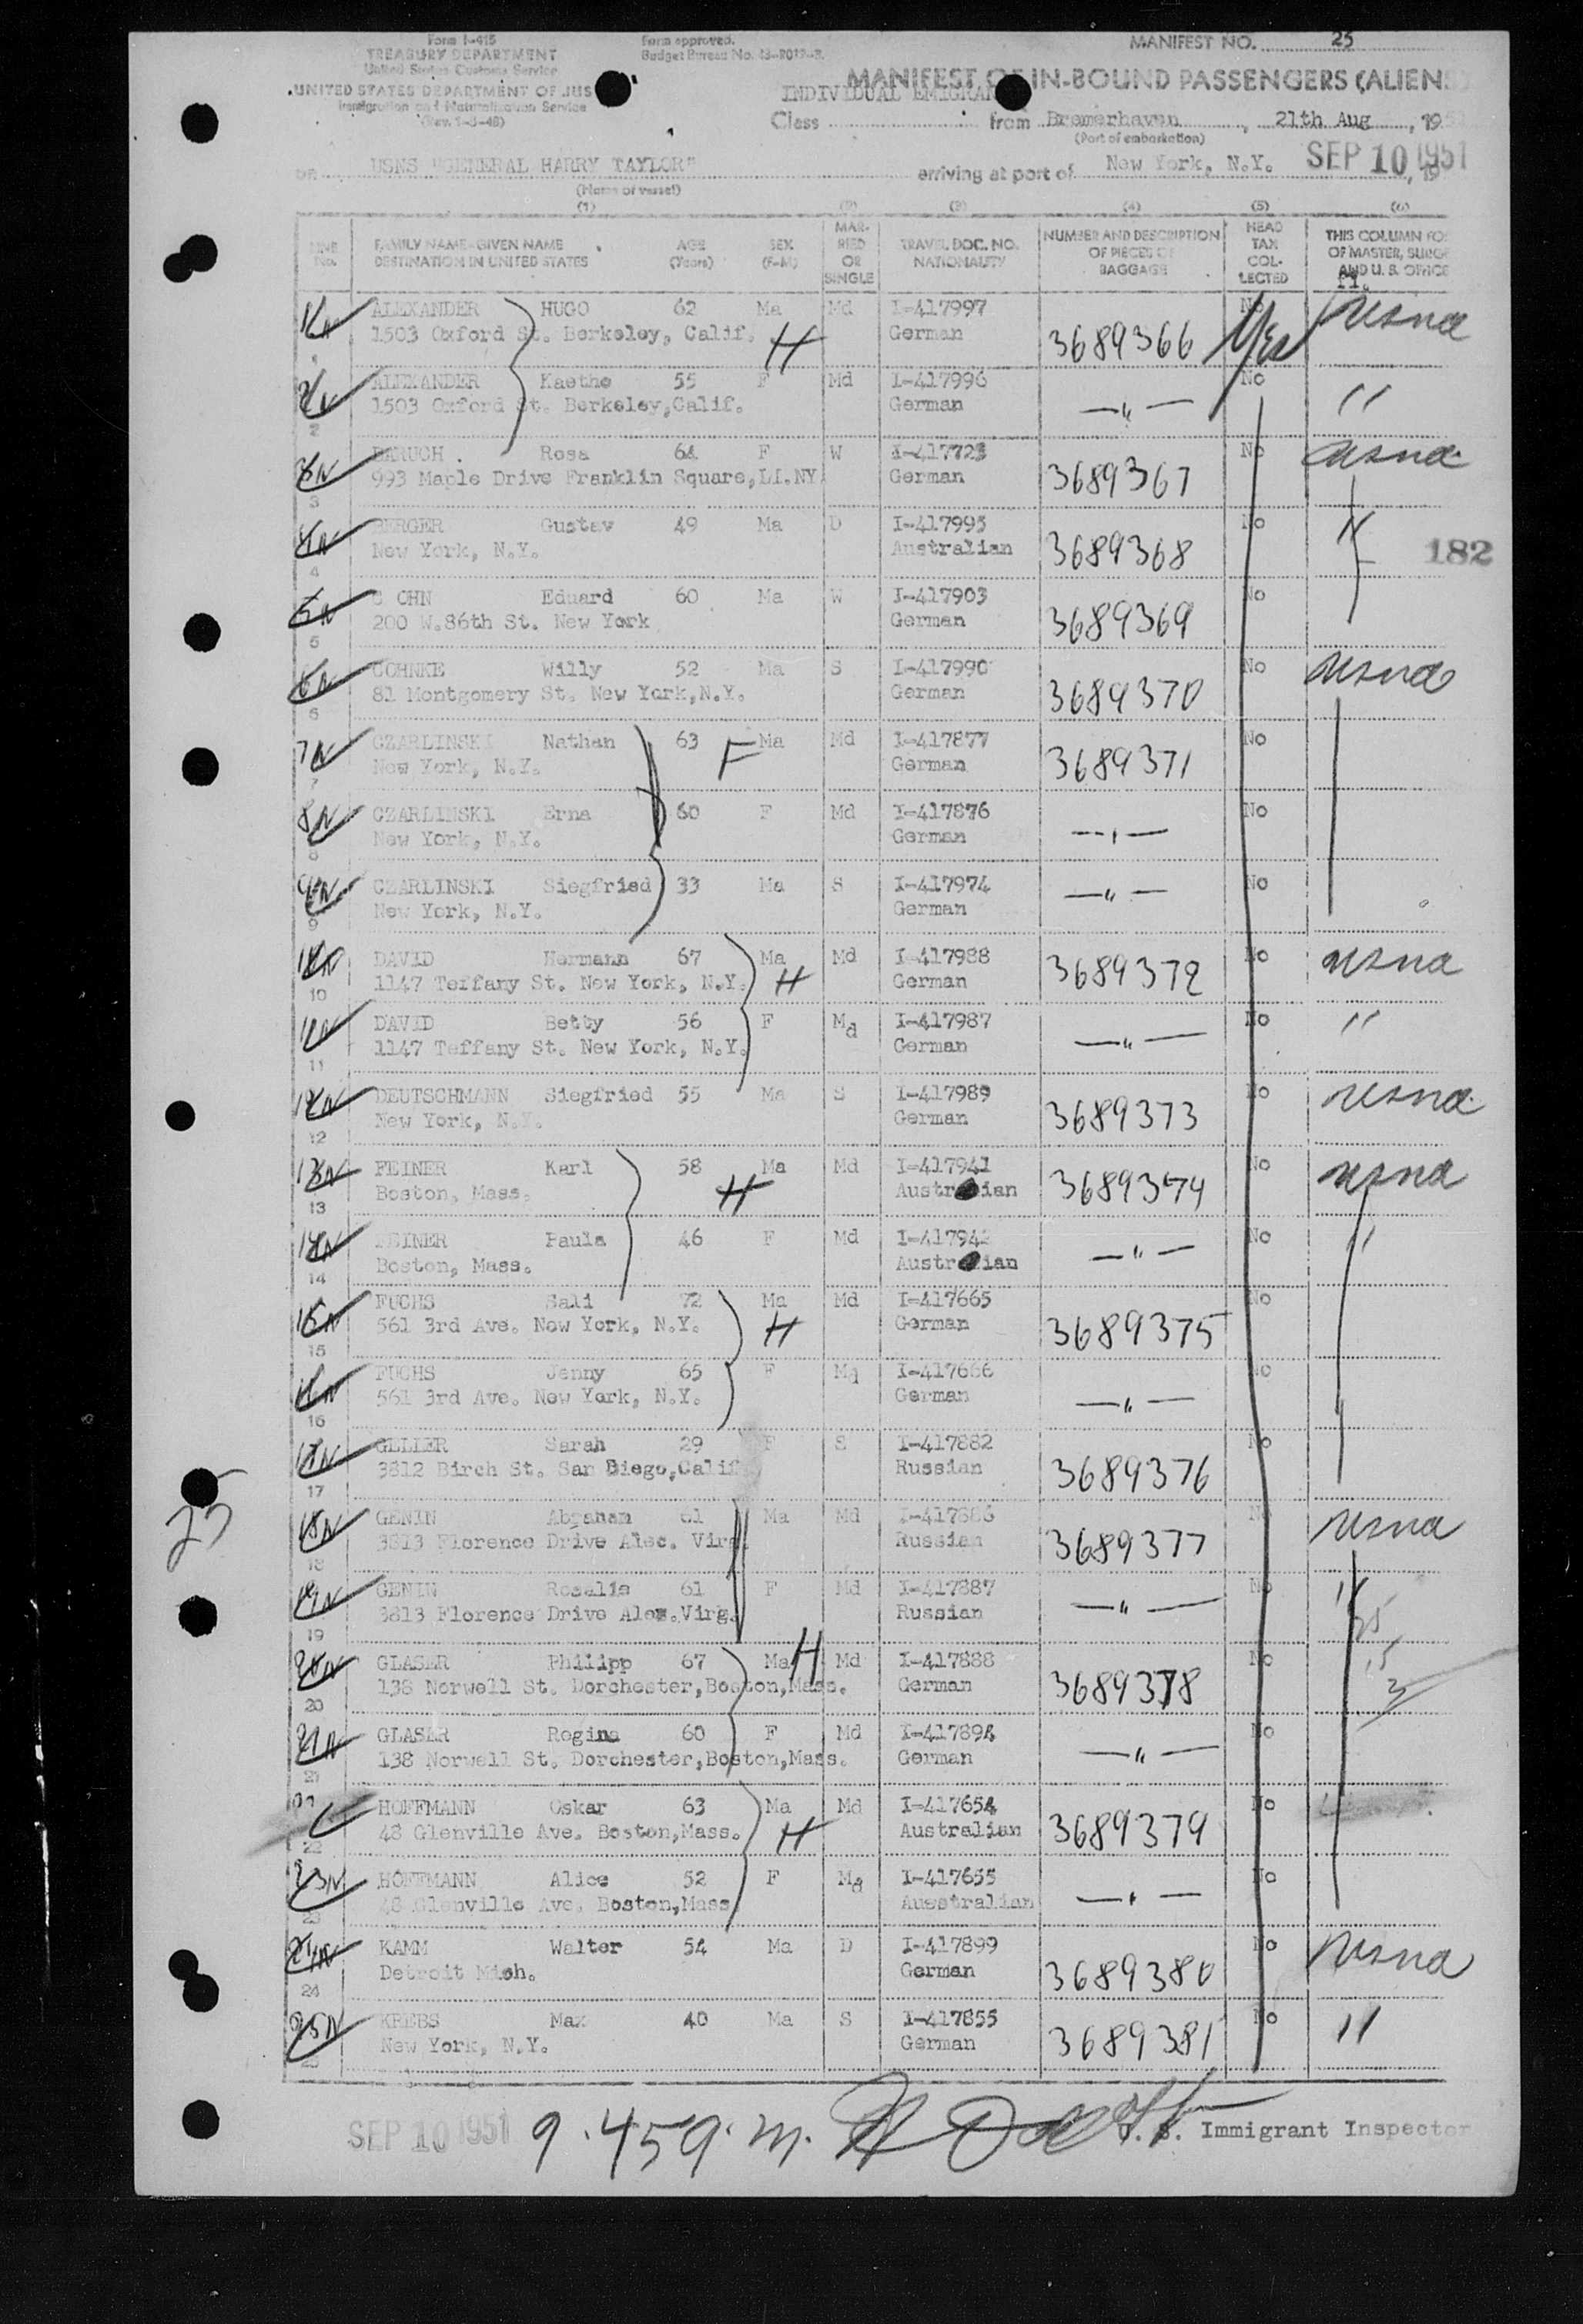 Form I-415
TREASURY DEPARTMENT
United States Customs Service
UNITED STATES DEPARTMENT OF JUS
Immigration and Naturalization Service
(Rev. 1-3-48)
Form approved.
Budget Bureau No.
MANIFEST NO. 25
MANIFEST OF IN-BOUND PASSENGERS (ALIENS)
INDIVIDUAL EMIGRAN
Class from Bremerhaven, 21th Aug, 19
(Port of embarkation)
on USNS "GENERAL HARRY TAYLOR" arriving at port of New York, N.Y. SEP 10 1951, 19
(Name of vessel)
(1) (2) (3) (4) (5) (6)
LINE No. FAMILY NAME-GIVEN NAME DESTINATION IN UNITED STATES AGE (Years) SEX (F-M) MARRIED OR SINGLE TRAVEL DOC. NO. NATIONALITY NUMBER AND DESCRIPTION OF PIECES OF BAGGAGE HEAD TAX COLLECTED THIS COLUMN FO OF MASTER, SURGE AND U. S. OFFICE
1 ALEXANDER HUGO 62 Ma Md I-417997 No
1503 Oxford St. Berkeley, Calif. H German 3689366 Yes usna
2 ALEXANDER Kaethe 55 F Md I-417996 No
1503 Oxford St. Berkeley, Calif. German —"— "
3 BARUCH Rosa 64 F W I-417723 No usna
993 Maple Drive Franklin Square, LI.NY German 3689367
4 BERGER Gustav 49 Ma D I-417995 No "
New York, N.Y. Australian 3689368
182
5 C OHN Eduard 60 Ma W I-417903 No
200 W.86th St. New York German 3689369
6 COHNKE Willy 52 Ma S I-417990 No usna
81 Montgomery St. New York, N.Y. German 3689370
7 CZARLINSKI Nathan 63 F Ma Md I-417877 No
New York, N.Y. German 3689371
8 CZARLINSKI Erna 60 F Md I-417876 No
New York, N.Y. German —"—
9 CZARLINSKI Siegfried 33 Ma S I-417974 No
New York, N.Y. German —"—
10 DAVID Hermann 67 Ma Md I-417988 No usna
1147 Teffany St. New York, N.Y. H German 3689372
11 DAVID Betty 56 F Md I-417987 No "
1147 Teffany St. New York, N.Y. German —"—
12 DEUTSCHMANN Siegfried 55 Ma S I-417989 No usna
New York, N.Y. German 3689373
13 FEINER Karl 58 Ma Md I-417941 No usna
Boston, Mass. H Austr ian 3689374
14 FEINER Paula 46 F Md I-417942 No "
Boston, Mass. Austr ian —"—
15 FUCHS Sali 72 Ma Md I-417665 No
561 3rd Ave. New York, N.Y. H German 3689375
16 FUCHS Jenny 65 F Md I-417666 No
561 3rd Ave. New York, N.Y. German —"—
17 GELLER Sarah 29 F S I-417882 No
3812 Birch St. San Diego, Calif. Russian 3689376
18 GENIN Abraham 61 Ma Md I-417886 No usna
3813 Florence Drive Alec. Virg. Russian 3689377
25
19 GENIN Rosalia 61 F Md I-417887 No "
3813 Florence Drive Alex. Virg. Russian —"—
20 GLASER Philipp 67 Ma H Md I-417888 No
138 Norwell St. Dorchester, Boston, Mass. German 3689378
21 GLASER Regina 60 F Md I-417894 No
138 Norwell St. Dorchester, Boston, Mass. German —"—
22 HOFFMANN Oskar 63 Ma Md I-417654 No
48 Glenville Ave. Boston, Mass. H Australian 3689379
23 HOFFMANN Alice 52 F Md I-417655 No
48 Glenville Ave. Boston, Mass Auestralian —"—
24 KAMM Walter 54 Ma D I-417899 No usna
Detroit Mich. German 3689380
25 KREBS Max 40 Ma S I-417855 No "
New York, N.Y. German 3689381
SEP 10 1951 9.45 a.m. U. S. Immigrant Inspector